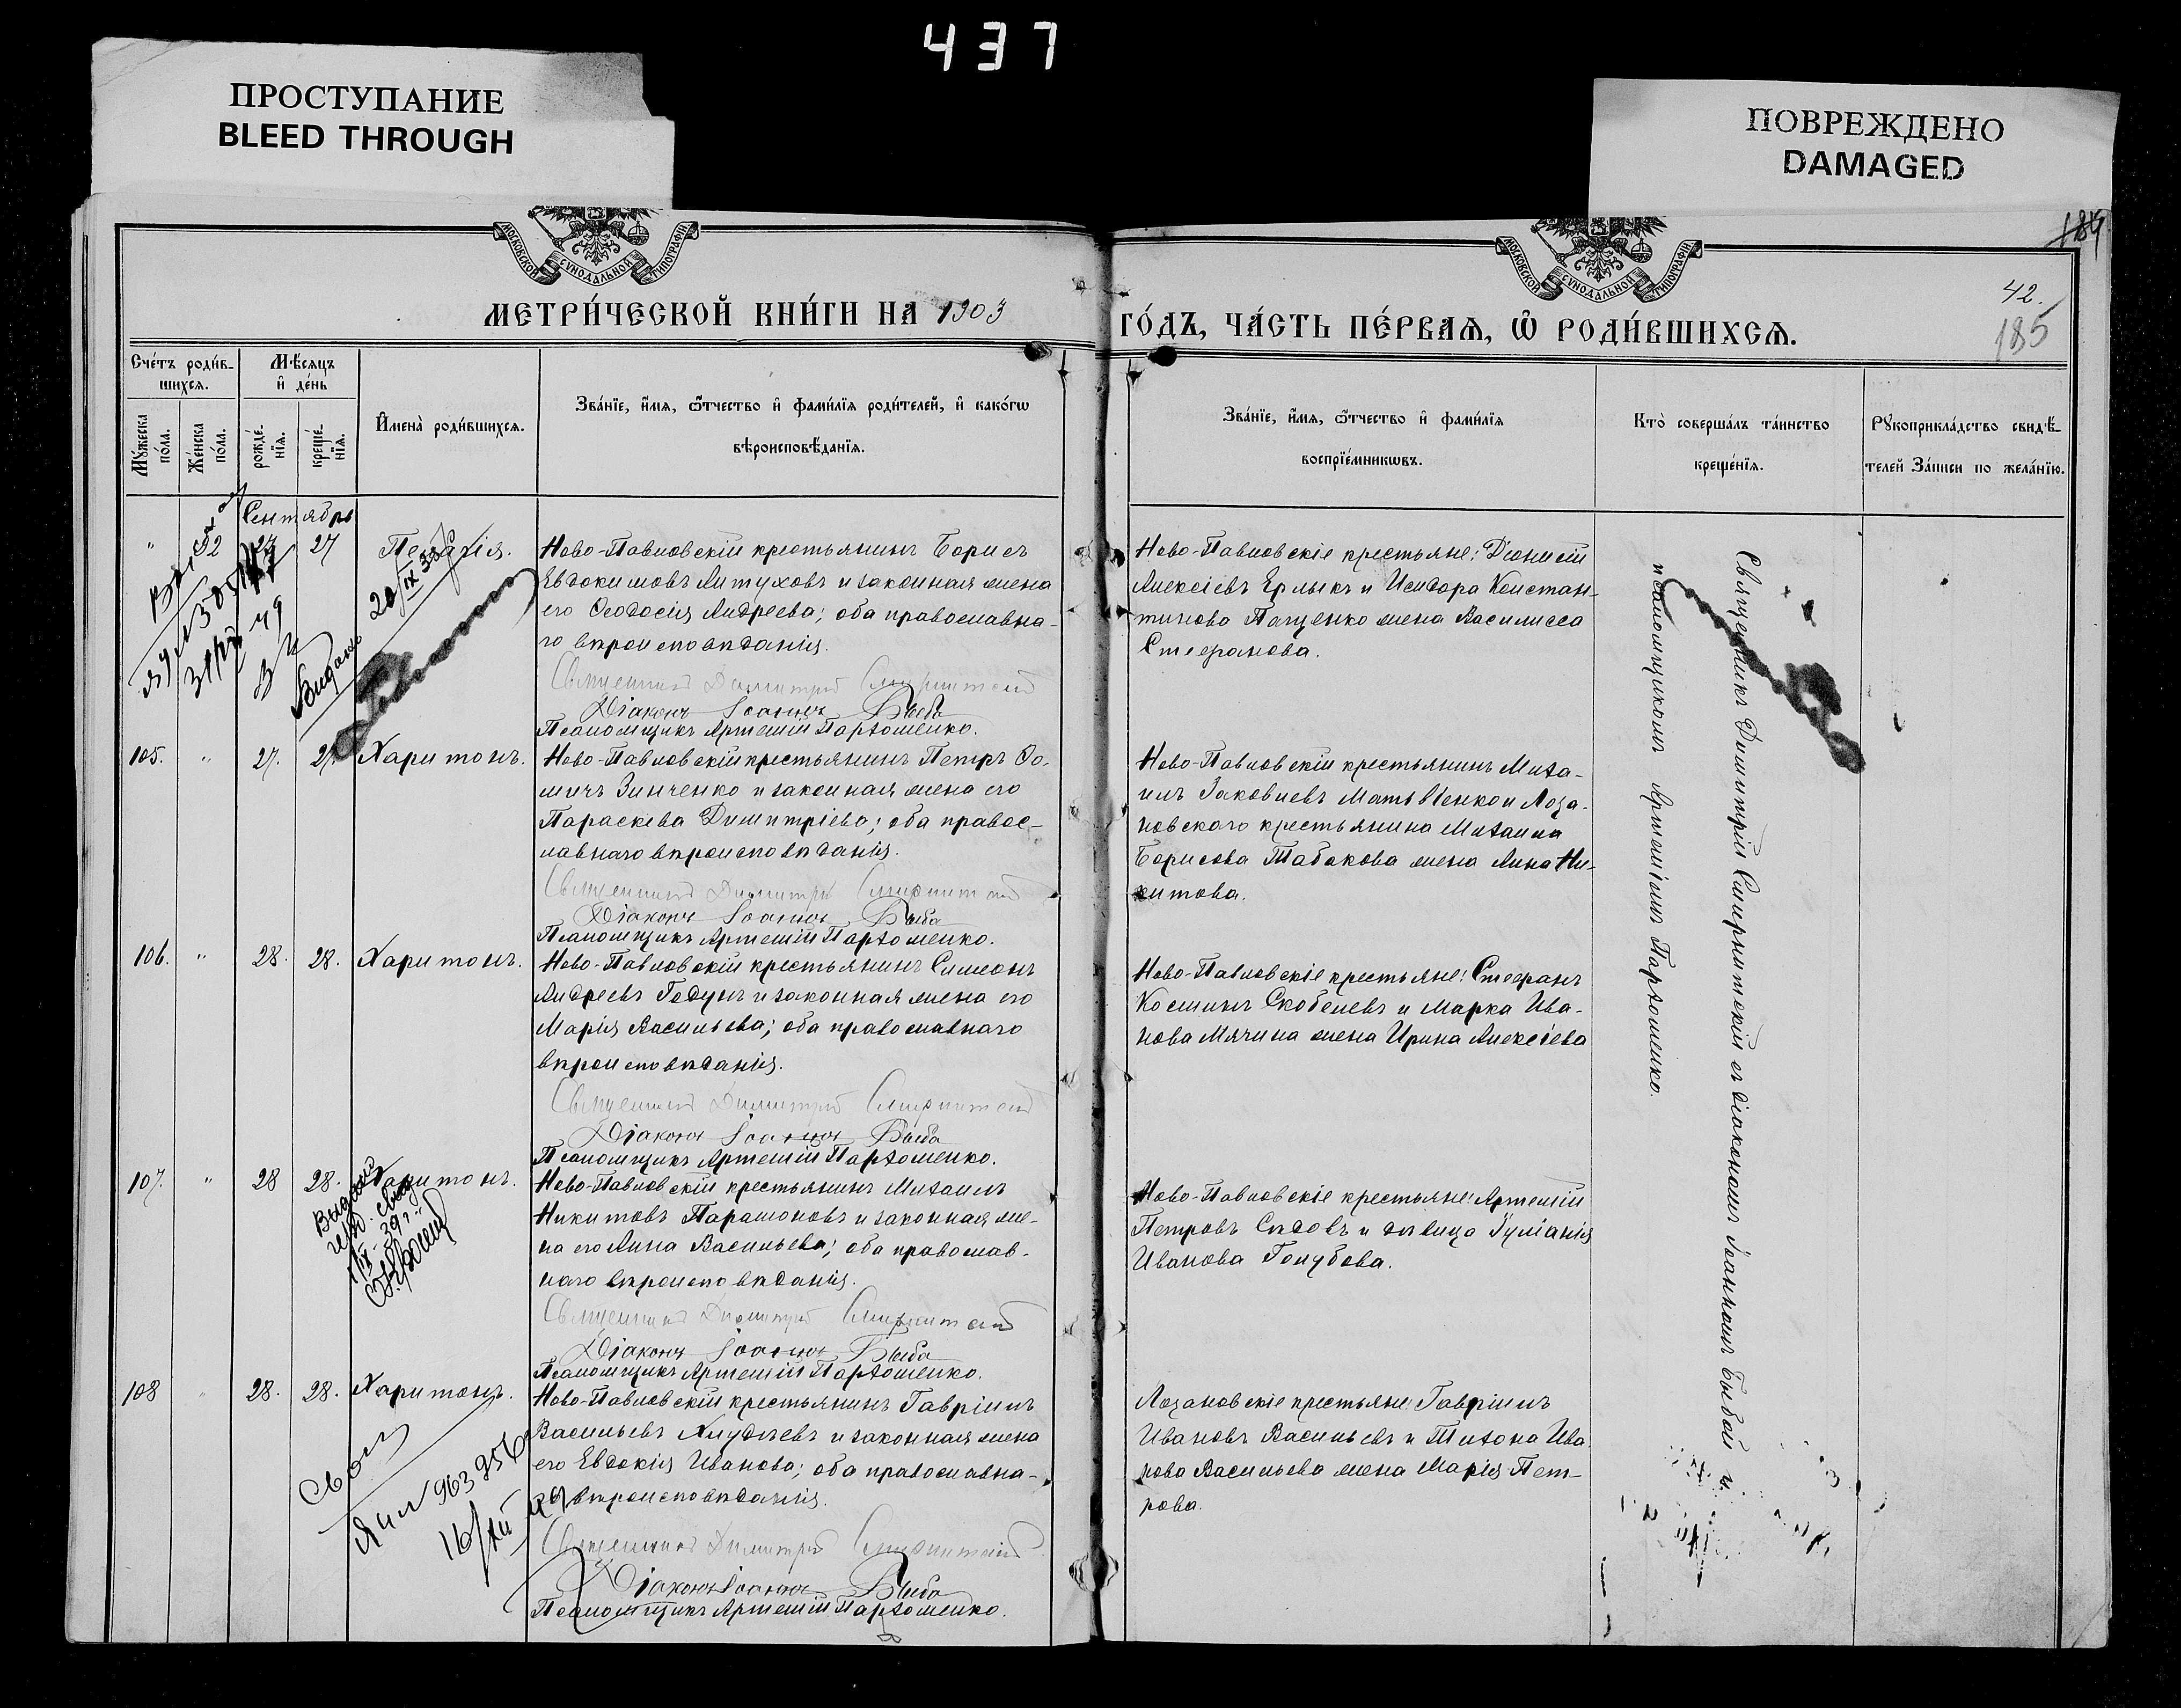 437
ПРОСТУПАНИЕ
BLEED THROUGH
ПОВРЕЖДЕНО
DAMAGED
МОСКОВСКОЙ СУНОДАЛЬНОЙ ТИПОГРАФІИ
МОСКОВСКОЙ СУНОДАЛЬНОЙ ТИПОГРАФІИ
184
42.
185
МЕТРИ́ЧЕСКОЙ КНИ́ГИ НА 1903
ГО́ДЪ, ЧА́СТЬ ПЕ́РВАЯ, Ѽ РОДИ́ВШИХСЯ.
Сче́тъ роди́в-
шихся.
Мѣ́сяцъ
и҆ де́нь
Мꙋ́жеска по́ла.
Же́нска по́ла.
рожде́-нїя.
креще́-нїя.
И҆мена̀ роди́вшихся.
Зва́нїе, и҆́мя, ѻ҆́тчество и҆ фами́лїя роди́телей, и҆ како́гѡ
вѣроисповѣ́данїя.
Зва́нїе, и҆́мя, ѻ҆́тчество и҆ фами́лїя
воспрїе́мникѡвъ.
Кто̀ соверша́лъ та́инство
креще́нїя.
Рꙋкоприкла́дство свидѣ́-
телей за́писи по жела́нїю.
Сентябрь
27 Пелагія.
Ново-Павловскій крестьянинъ Борисъ
Евдокимовъ Литуховъ и законная жена
его Ѳеодосія Андреева; оба православна-
го вѣроисповѣданія.
Священникъ Димитрій
Діаконъ Іоаннъ Быба
Псаломщикъ Артемій Пархоменко.
Ново-Павловскіе крестьяне: Діонисій
Алексіевъ Ерлыкъ и Исидора Констан-
тинова Пащенко жена Василисса
Стефанова.
Выдано
20/IX 33
105. " 27. 27. Харитонъ.
Ново-Павловскій крестьянинъ Петръ Ѳо-
мичъ Зинченко и законная жена его
Параскева Димитріева; оба правос-
лавнаго вѣроисповѣданія.
Священникъ Димитрій
Діаконъ Іоаннъ Быба
Псаломщикъ Артемій Пархоменко.
Ново-Павловскій крестьянинъ Миха-
илъ Іаковлевъ Матвѣенко и Лоза-
новскаго крестьянина Михаила
Борисова Табакова жена Анна Ни-
китова.
106. " 28. 28. Харитонъ.
Ново-Павловскій крестьянинъ Симеонъ
Андреевъ Годунъ и законная жена его
Марія Васильева; оба православнаго
вѣроисповѣданія.
Священникъ Димитрій
Діаконъ Іоаннъ Быба
Псаломщикъ Артемій Пархоменко.
Ново-Павловскіе крестьяне: Стефанъ
Косминъ Скобелевъ и Марка Ива-
нова Мячина жена Ирина Алексіева
107. " 28 28. Харитонъ.
Ново-Павловскій крестьянинъ Михаилъ
Никитовъ Парамоновъ и законная же-
на его Анна Васильева; оба православ-
наго вѣроисповѣданія.
Священникъ Димитрій
Діаконъ Іоаннъ Быба
Псаломщикъ Артемій Пархоменко.
Ново-Павловскіе крестьяне: Артемій
Петровъ Сѣдовъ и дѣвица Іуліанія
Иванова Голубова.
108 " 28. 28. Харитонъ.
Ново-Павловскій крестьянинъ Гавріилъ
Васильевъ Хлудѣевъ и законная жена
его Евдокія Иванова; оба православна-
го вѣроисповѣданія.
Священникъ Димитрій
Діаконъ Іоаннъ Быба
Псаломщикъ Артемій Пархоменко.
Лозановскіе крестьяне Гавріилъ
Ивановъ Васильевъ и Тихона Ива-
нова Васильева жена Марія Пет-
рова.
16/XII 49
Священникъ Димитрій Смирнитскій съ діакономъ Іоанномъ Быбой и
псаломщикомъ Артеміемъ Пархоменко.